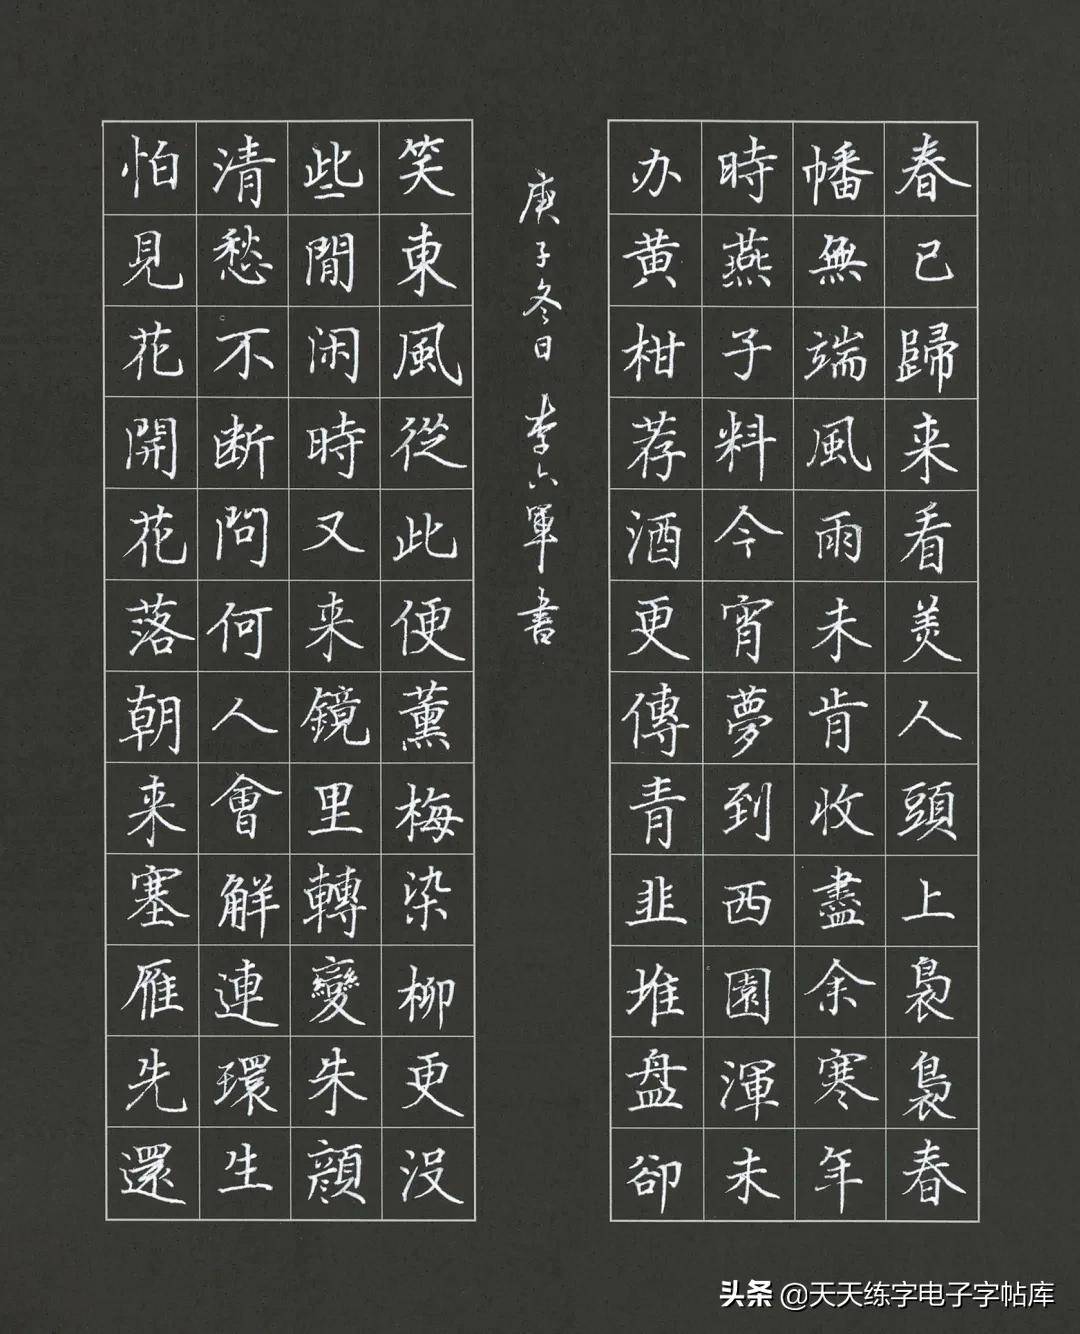 春已歸来看美人頭上裊裊春
幡無端風雨未肯收盡余寒年
時燕子料今宵夢到西園渾未
办黄柑荐酒更傳青韭堆盘卻
笑東風從此便薰梅染柳更没
些閒闲時又来鏡里轉變朱顔
清愁不断問何人會解連環生
怕見花開花落朝来塞雁先還
庚子冬日 李六軍書
头条 @天天练字电子字帖库